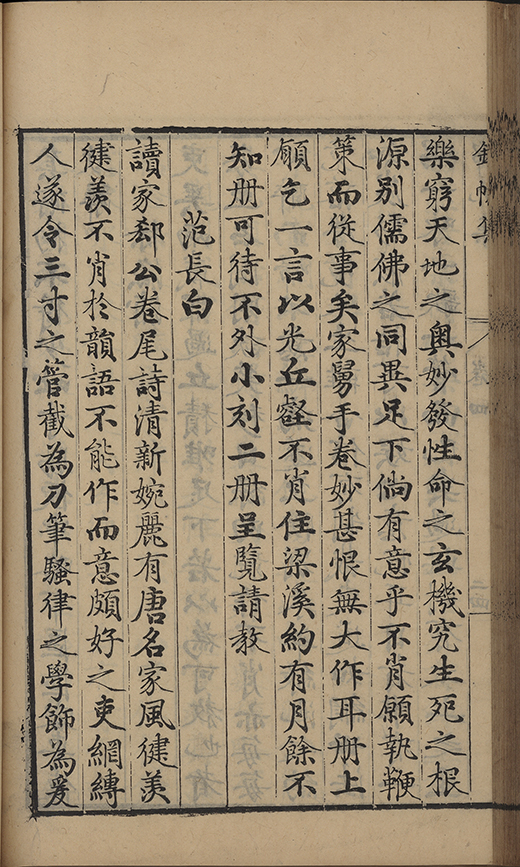 樂窮天地之奧妙發性命之玄機究生死之根
源别儒佛之同異足下倘有意乎不肖願執鞭
策而從事矣家舅手卷妙甚恨無大作耳册上
願乞一言以光丘壑不肖住梁溪約有月餘不
知册可待不外小刻二册呈覽請教
范長白
讀家郄公卷尾詩清新婉麗有唐名家風健羡
健羡不肖於韻語不能作而意頗好之吏網縛
人遂令三寸之管截為刀筆騷律之學飾為爰